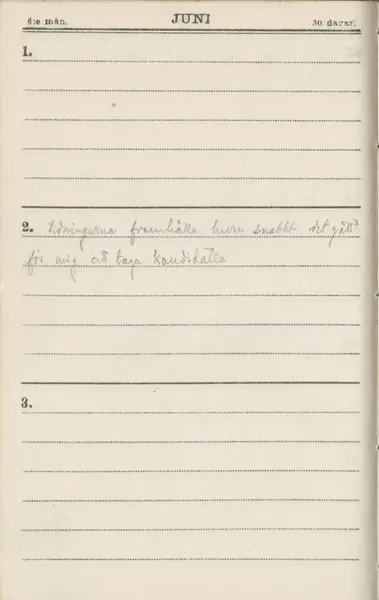 6:e mån. JUNI 30 dagar.
1.
2. Tidningarna framhålla huru snabbt det gått
för mig att taga kandidaten
3.